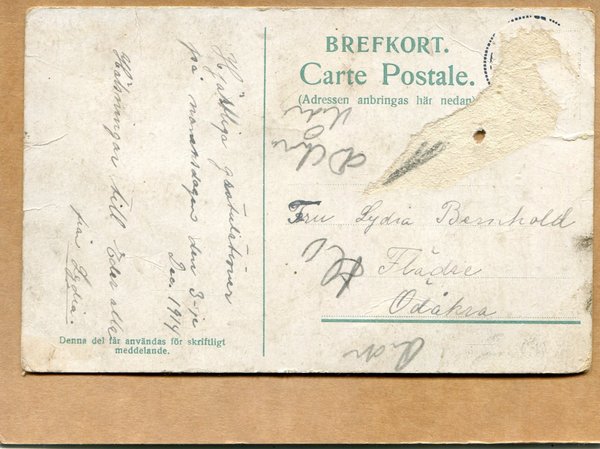 BREFKORT.
Carte Postale.
(Adressen anbringas här nedan)
Fru Lydia Bernhold
Flädre
Ödåkra
Hjärtliga gratulationer
på namnsdagen den 3-je
Dec. 1914
Hälsningar till Eder alla
från Lydia.
Denna del får användas för skriftligt
meddelande.